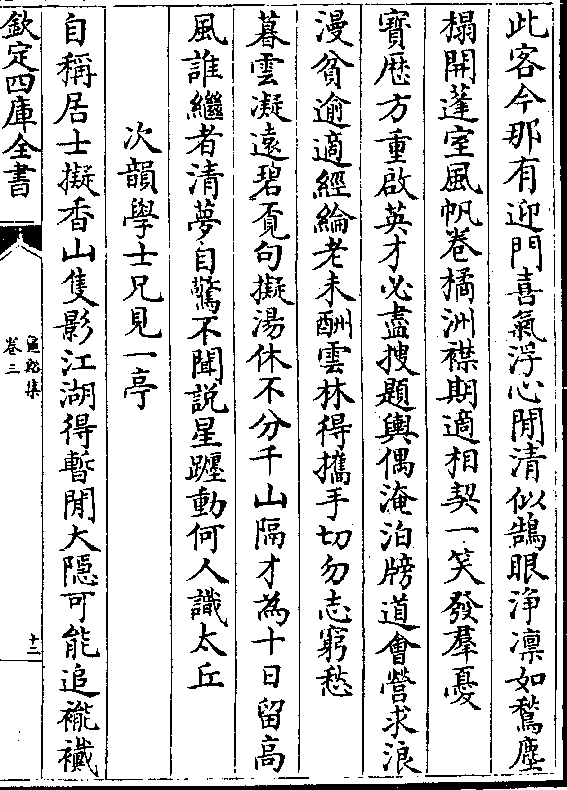 此客今那有迎門喜氣浮心閒清似鵠眼浄凛如鶖塵
榻開蓬室風帆卷橘洲襟期適相契一笑發羣憂
寶厯方重啟英才必盡搜題輿偶淹泊牓道㑹營求浪
漫貧逾適經綸老未酬雲林得攜手切勿志窮愁
暮雲凝逺碧覔句擬湯休不分千山隔才為十日留髙
風誰繼者清夢自驚不聞說星躔動何人識太丘
次韻學士兄見一亭
自稱居士擬香山隻影江湖得暫閒大隠可能追褦襶
欽定四庫全書
龜谿集
卷三
十三